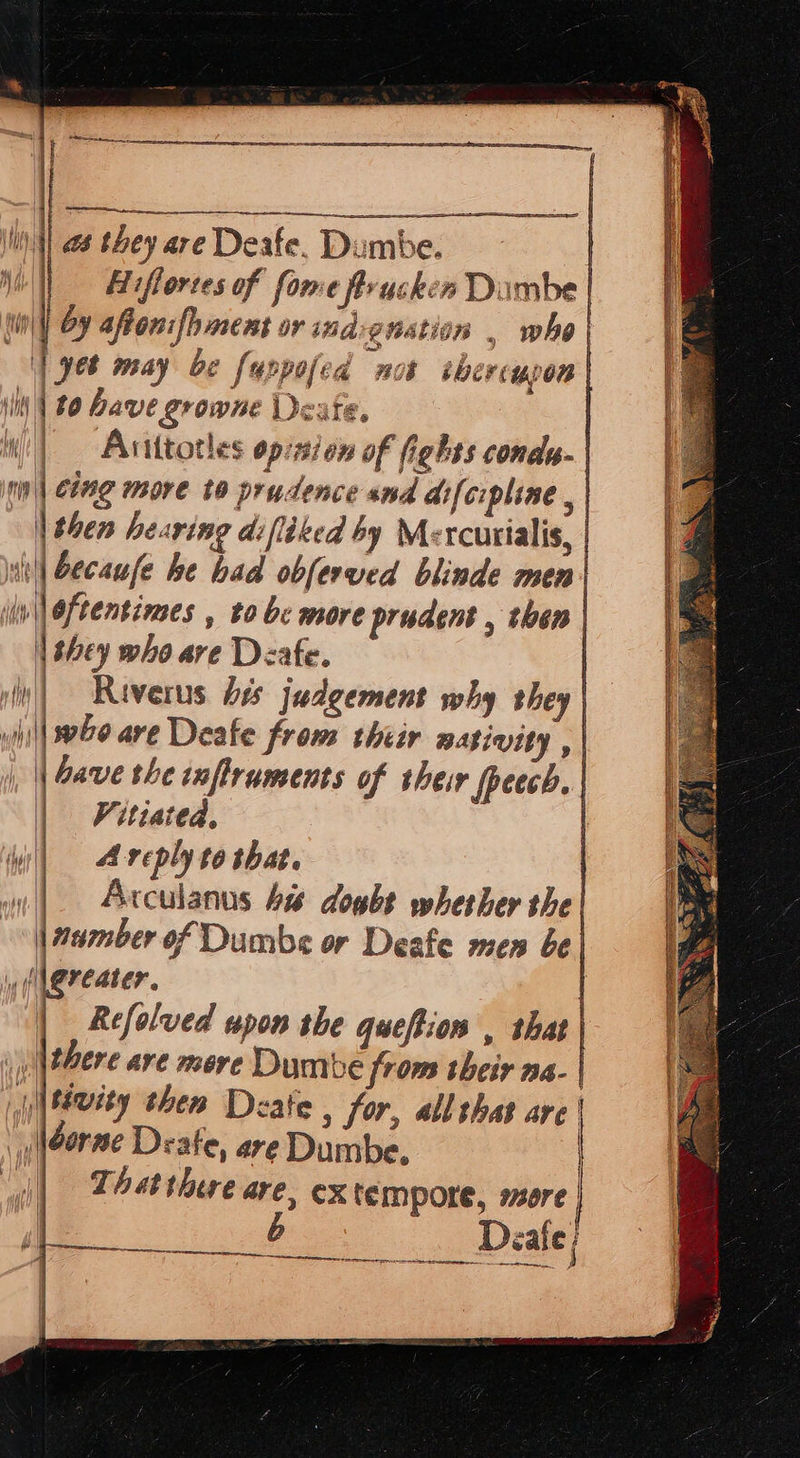 as they are Deafe, Dumbe.
Hiſtories of ſome ſtrucken Dumbe
by aſtoniſhment or indignation , who
yet may be ſuppoſed not thereupon
to have growne Deafe.
Ariſtotles opinion of ſights condu-
cing more to prudence and diſcipline ,
then hearing diſliked by Mercurialis,
becauſe he had obſerved blinde men
oftentimes , to be more prudent , then
they who are Deafe.
Riverus his judgement why they
who are Deafe from their nativity ,
have the inſtruments of their ſpeech.
Vitiated.
A reply to that.
Arculanus his doubt whether the
number of Dumbe or Deafe men be
greater.
Reſolved upon the queſtion , that
there are more Dumbe from their na-
tivity then Deafe , for, all that are
borne Deafe, are Dumbe.
That there are, extempore, more
b Deafe